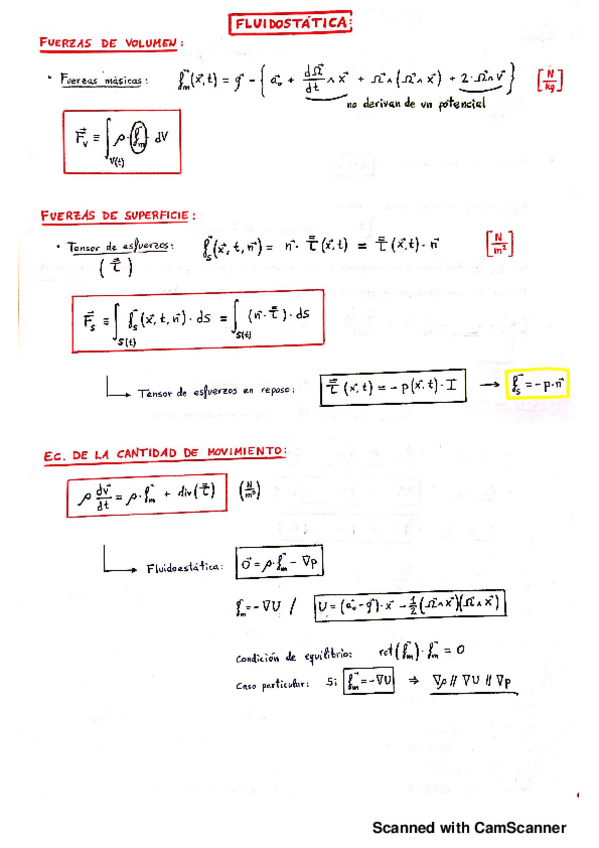 FLUIDOSTÁTICA:
FUERZAS DE VOLUMEN:
• Fuerzas másicas: f⃗ₘ(x⃗,t) = g⃗ - { a⃗₀ + dΩ⃗/dt ∧ x⃗ + Ω⃗∧(Ω⃗∧x⃗) + 2·Ω⃗∧v⃗ } [N/kg]
no derivan de un potencial
F⃗ᵥ ≡ ∫V(t) ρ·f⃗ₘ· dV
FUERZAS DE SUPERFICIE:
• Tensor de esfuerzos: f⃗ₛ(x⃗,t,n⃗) = n⃗· τ̿(x⃗,t) = τ̿(x⃗,t)·n⃗ [N/m²]
(τ̿)
F⃗ₛ ≡ ∫S(t) f⃗ₛ(x⃗,t,n⃗)·ds = ∫S(t) (n⃗·τ̿)·ds
Tensor de esfuerzos en reposo: τ̿(x⃗,t) = -p(x⃗,t)·I → f⃗ₛ = -p·n⃗
EC. DE LA CANTIDAD DE MOVIMIENTO:
ρ dv⃗/dt = ρ·f⃗ₘ + div(τ̿) (N/m³)
Fluidoestática: 0⃗ = ρ·f⃗ₘ - ∇p
f⃗ₘ = -∇U / U = (a⃗₀ - g⃗)·x⃗ - ½(Ω⃗∧x⃗)(Ω⃗∧x⃗)
Condición de equilibrio: rot(f⃗ₘ)·f⃗ₘ = 0
Caso particular: Si f⃗ₘ = -∇U ⇒ ∇ρ // ∇U // ∇p
Scanned with CamScanner